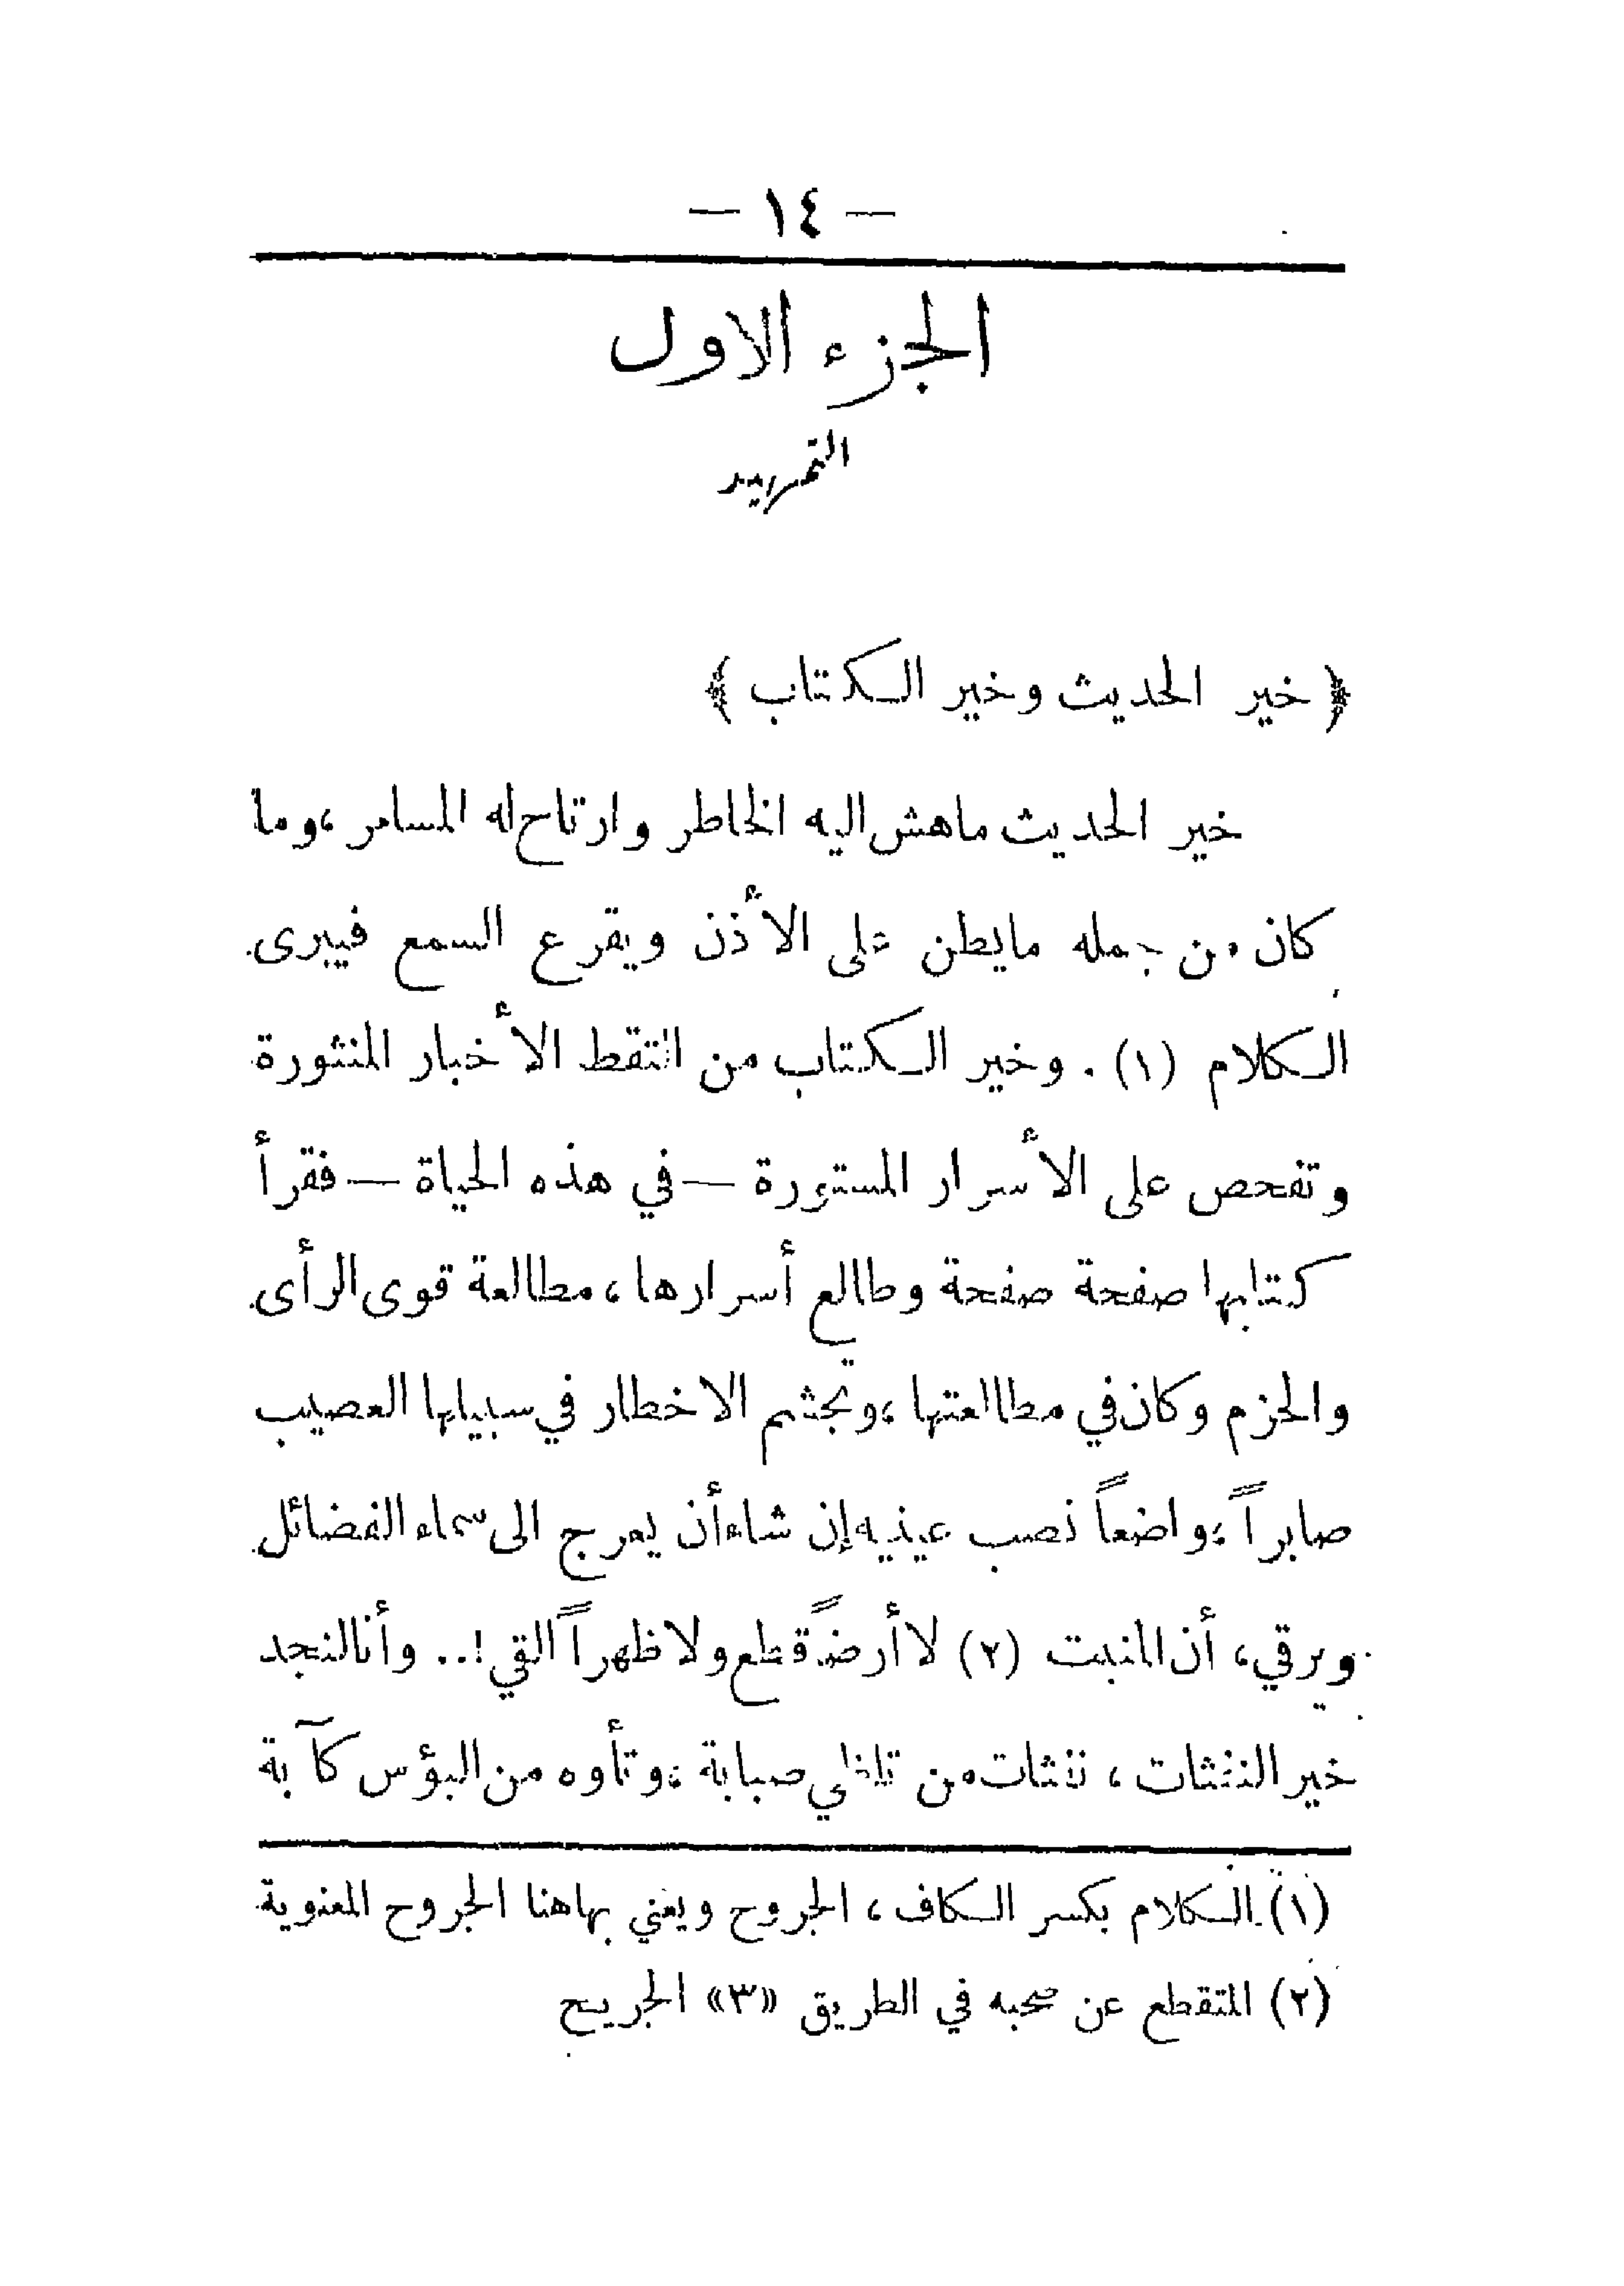 — ١٤ —
الجزء الاول
التمهيد
﴿ خير الحديث وخير الكتاب ﴾
خير الحديث ماهش اليه الخاطر وارتاح له المسامر ، وما
كان من جمله مايطن على الأذن ويقرع السمع فيبرى
الكلام (١) . وخير الكتاب من التقط الأخبار المنثورة
وتفحص على الأسرار المستورة — في هذه الحياة — فقرأ
كتابها صفحة صفحة وطالع أسرارها ، مطالعة قوى الرأى
والحزم وكان في مطالعتها ، وتجشم الاخطار في سبيلها العصيب
صابراً ، واضعاً نصب عينيه إن شاء أن يعرج الى سماء الفضائل
ويرقي ، أن المنبت (٢) لا أرضً قطع ولا ظهراً القي ! .. وأنا لنجد
خير النفثات ، نفثات من تلظي صبابة ، وتأوه من البؤس كآبة
(١) الكلام بكسر الكاف ، الجروح ويعني بها هنا الجروح المعنوية
(٢) المتقطع عن صحبه في الطريق «٣» الجريح